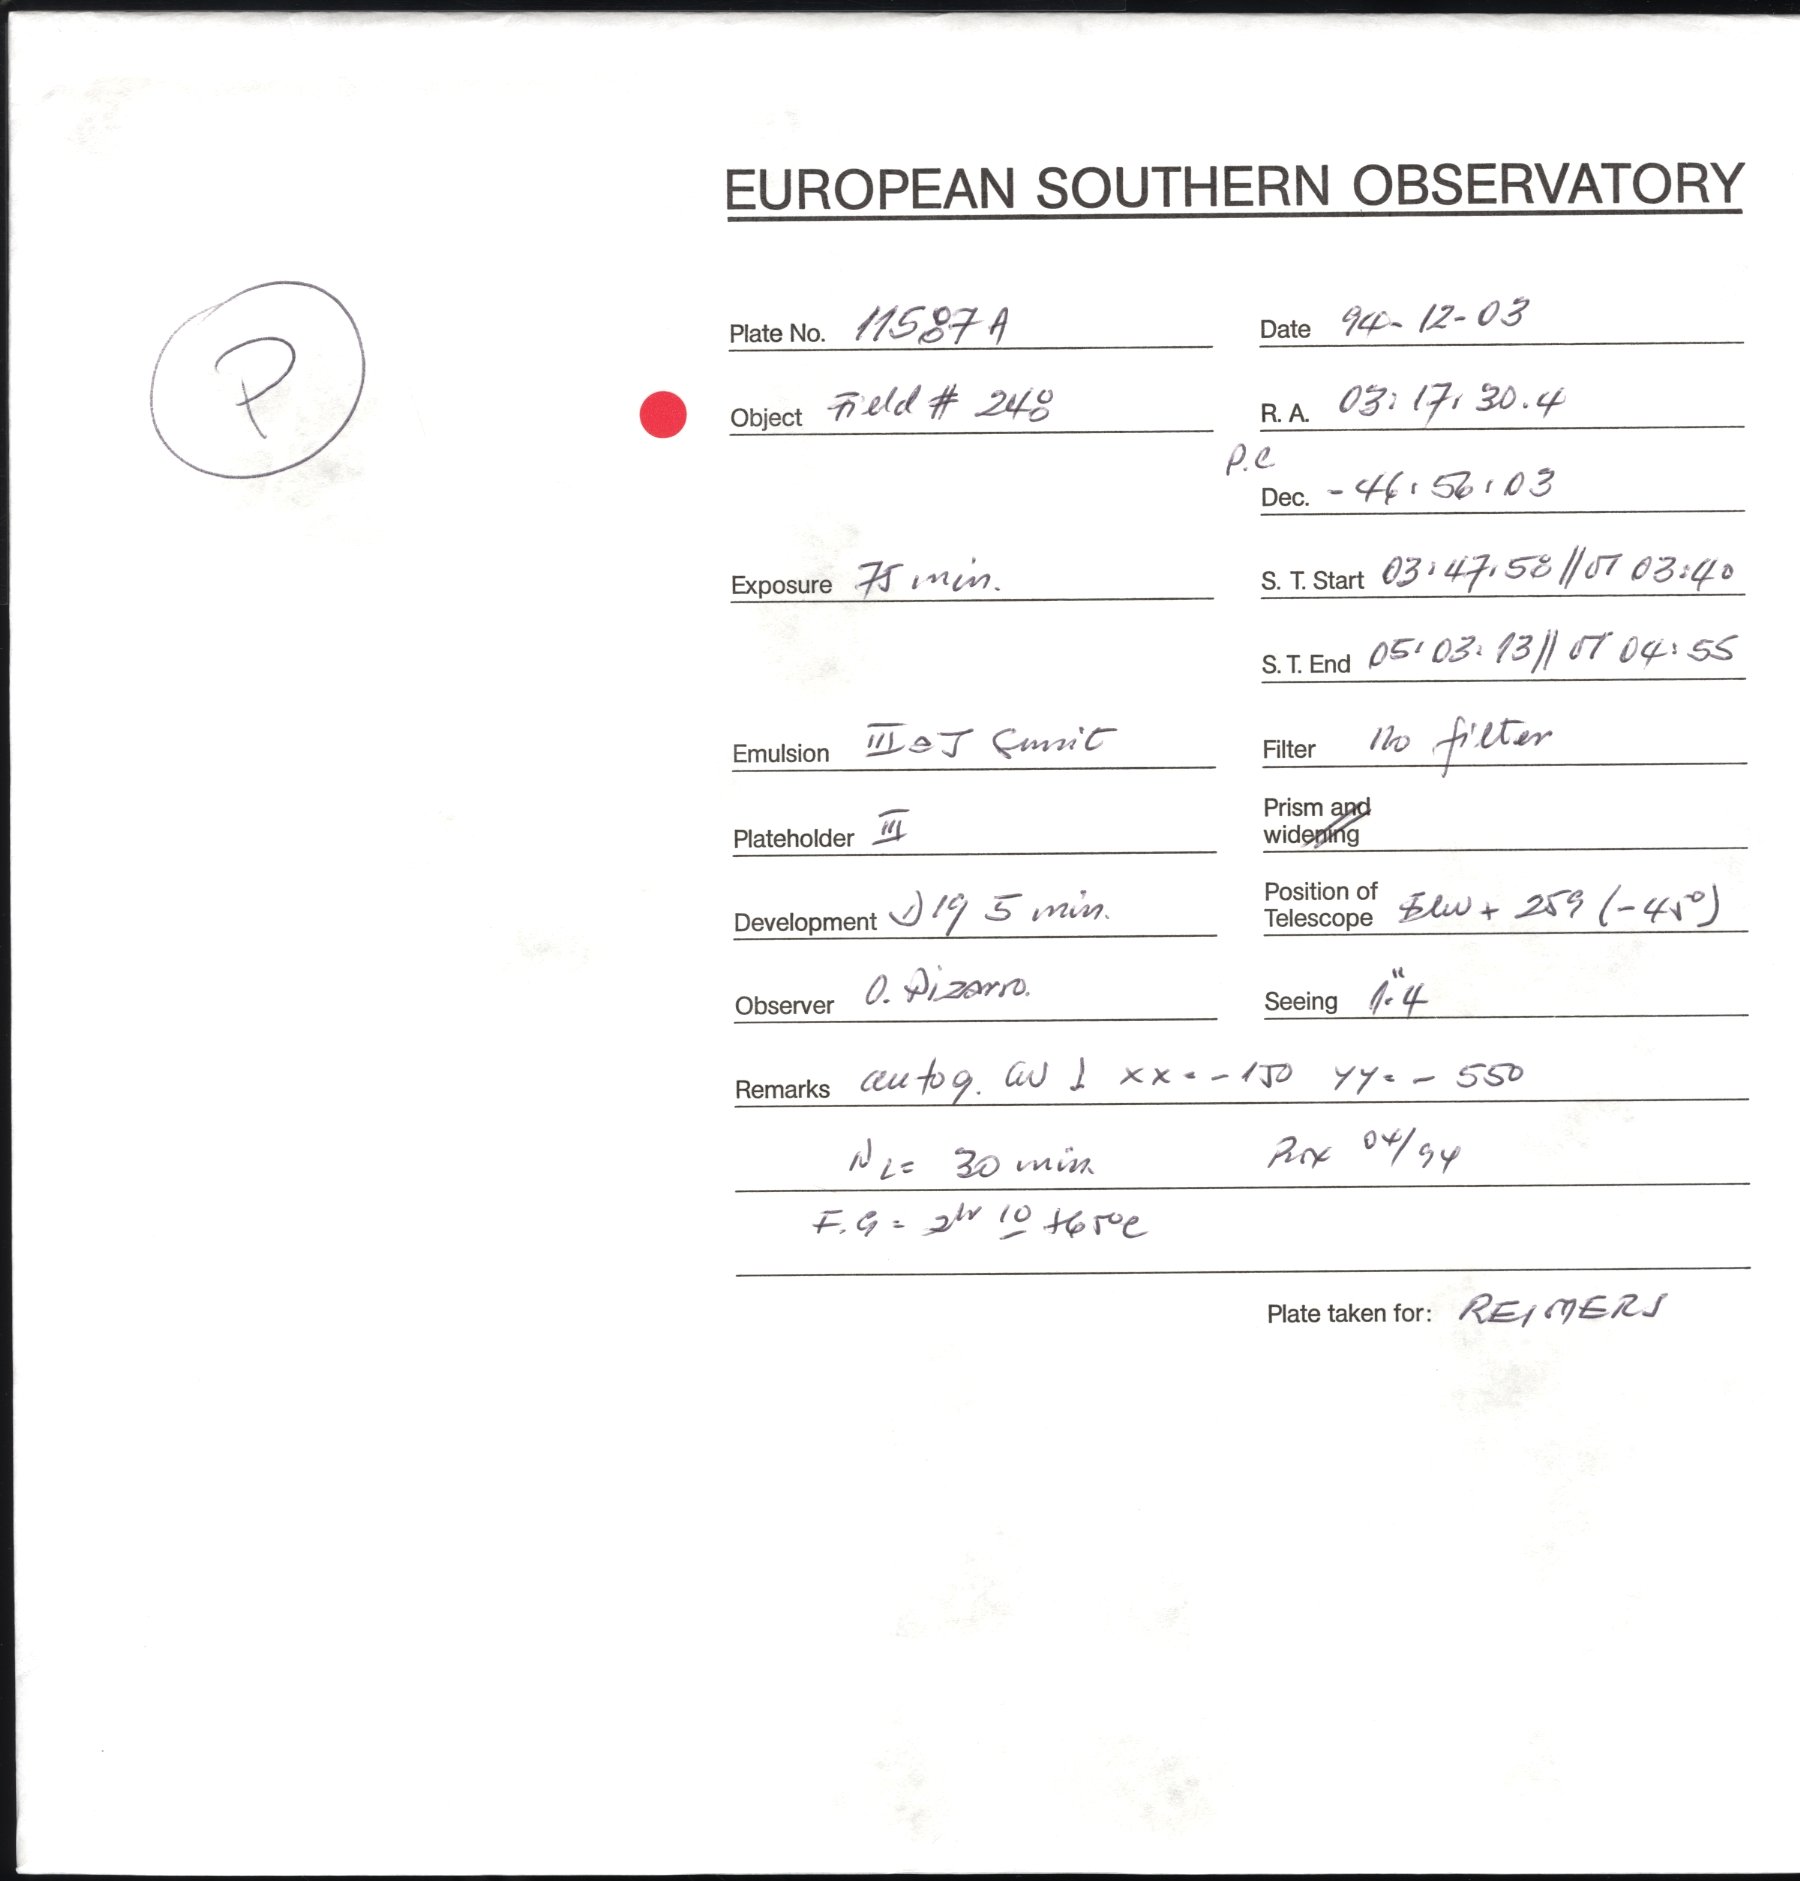 EUROPEAN SOUTHERN OBSERVATORY
P
Plate No. 11587A Date 94-12-03
Object Field # 248 R. A. 03:17:30.4
P.C
Dec. -46:56:03
Exposure 75 min. S. T. Start 03:47:58//UT 03:40
S. T. End 05:03:13//UT 04:55
Emulsion IIIaJ Filter no filter
Plateholder III Prism and
widening
Development D19 5 min. Position of
Telescope + 259 (-45°)
Observer O. Pizarro. Seeing 1".4
Remarks autog. xx=-150 yy=-550
NL= 30 min. 04/94
F.G = 2hr 10 +65°C
Plate taken for: REIMERS